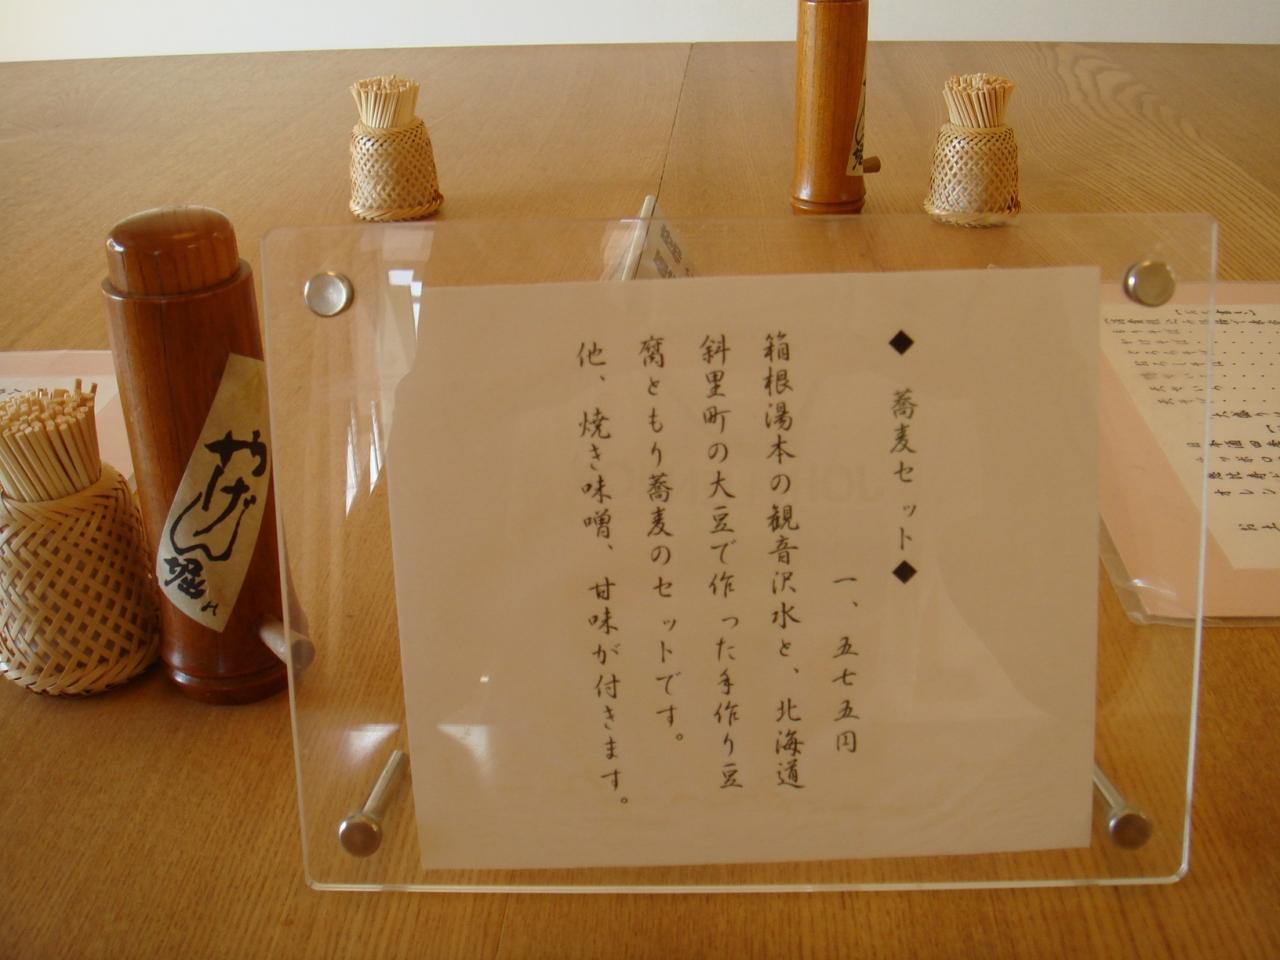 ◆ 蕎麦セット◆
一、五七五円
箱根湯本の観音沢水と、北海道
斜里町の大豆で作った手作り豆
腐ともり蕎麦のセットです。
他、焼き味噌、甘味が付きます。
やげん堀